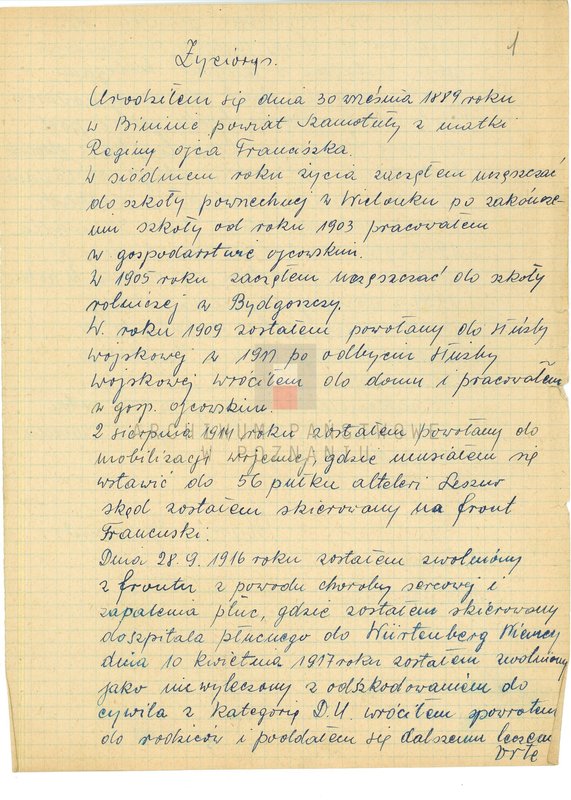 1
Życiorys.
Urodziłem się dnia 30 września 1889 roku
w Bininie powiat Szamotuły z matki
Reginy ojca Franciszka.
W siódmem roku życia zaczęłem uczęszczać
do szkoły powszechnej w Wielonku po zakończe-
niu szkoły od roku 1903 pracowałem
w gospodarstwie ojcowskim.
W 1905 roku zaczęłem uczęszczać do szkoły
rolniczej w Bydgoszczy.
W. roku 1909 zostałem powołany do służby
wojskowej w 1911 po odbyciu służby
wojskowej wróciłem do domu i pracowałem
w gosp. ojcowskim.
2 sierpnia 1914 roku zostałem powołany do
mobilizacji wojennej, gdzie musiałem się
wstawić do 56 pułku alteleri
skąd zostałem skierowany na front
Francuski.
Dnia 28.9.1916 roku zostałem zwolniony
z frontu z powodu choroby sercowej i
zapalenia płuc, gdzie zostałem skierowany
do szpitala płucnego do Würtenberg Niemcy
dnia 10 kwietnia 1917 roku zostałem zwolniony
jako niewyleczony z odszkodowaniem do
cywila z kategorią D.U. wróciłem spowrotem
do rodziców i poddałem się dalszemu leczen
ARCHIWUM PAŃSTWOWE
W POZNANIU